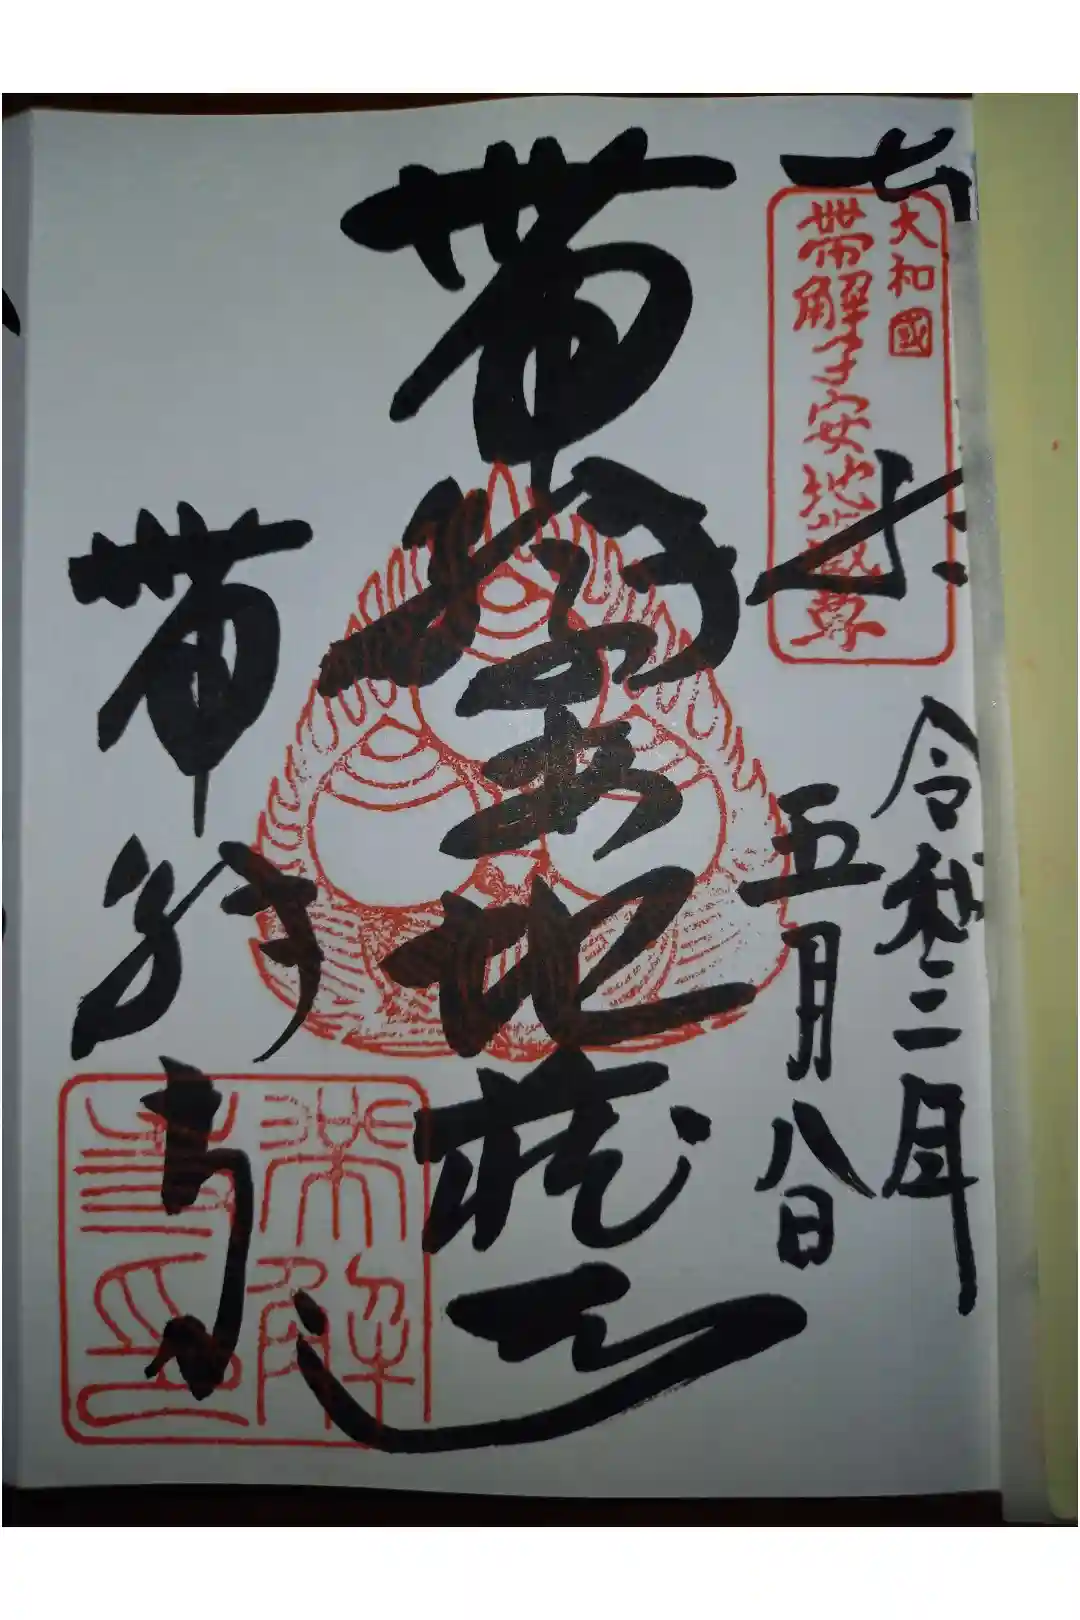 奉拝
大和國
帯解子安地蔵尊
令和三年
五月八日
帯解子安地蔵尊
帯解寺
帯解
寺印